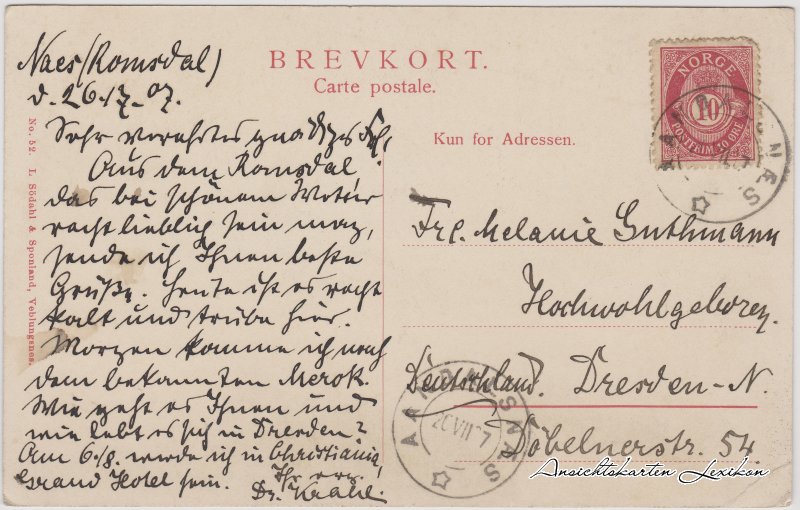 Naes (Romsdal)
d. 26.7.07.
Sehr verehrtes gnädiges Frl.
Aus dem Romsdal,
das bei schönem Wetter
recht lieblich sein mag,
sende ich Ihnen beste
Grüße. Heute ist es recht
kalt und trübe hier.
Morgen komme ich nach
dem bekannten Merok.
Wie geht es Ihnen und
wie lebt es sich in Dresden?
Am 6./8. werde ich in Christiania,
Grand Hotel sein.
Ihr erg.
Dr. Krahl.
No. 52. L. Södahl & Sponland, Veblungsnes.
BREVKORT.
Carte postale.
Kun for Adressen.
NORGE
10
POSTFRIM 10 ØRE
AANDALSNÆS
Frl. Melanie Guthmann
Hochwohlgeboren.
Deutschland. Dresden-N.
Döbelnerstr. 54.
AANDALSNÆS
VII 7
Ansichtskarten Lexikon